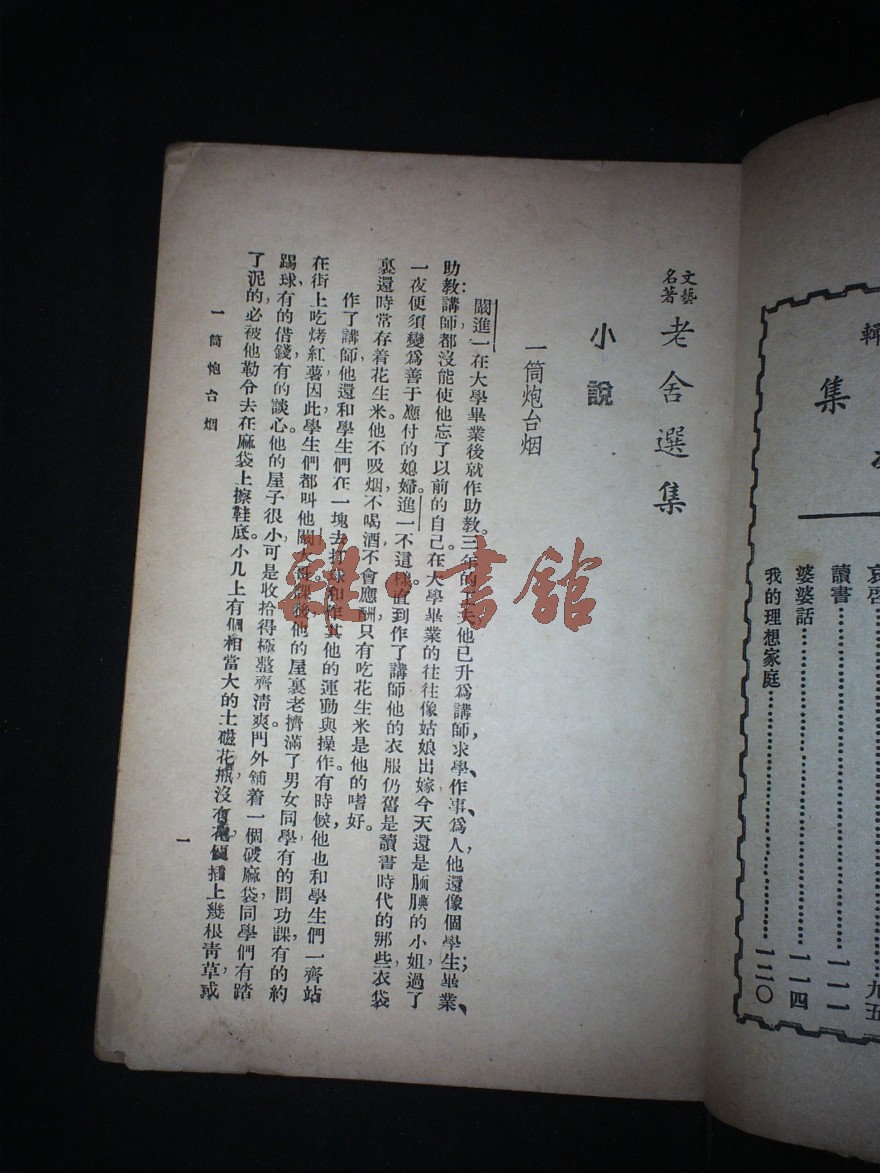 輯
集
哀啓……九五
讀書……一一一
婆婆話……一一四
我的理想家庭……一二〇
文藝名著
老舍選集
小說
一筒炮台烟
闞進一在大學畢業後就作助教。三年的工夫他已升爲講師，求學、作事、爲人，他還像個學生；畢業、
助教，講師都沒能使他忘了以前的自己。在大學畢業的往往像姑娘出嫁，今天還是腼腆的小姐，過了
一夜便須變爲善于應付的媳婦。進一不這樣，直到作了講師，他的衣服仍舊是讀書時代的那些，衣袋
裏還時常存着花生米。他不吸烟，不喝酒，不會應酬，只有吃花生米是他的嗜好。
作了講師，他還和學生們在一塊去打球和作其他的運動與操作。有時候，他也和學生們一齊站
在街上吃烤紅薯，因此，學生們都叫他闞大哥。課後，他的屋裏老擠滿了男女同學，有的問功課，有的約
踢球，有的借錢，有的談心。他的屋子很小，可是收拾得極整齊清爽，門外舖着一個破麻袋，同學們有踏
了泥的，必被他勒令去在麻袋上擦鞋底。小几上有個相當大的土磁花瓶，沒有花便插上幾根青草，或
一筒炮台烟
一
雜·書館